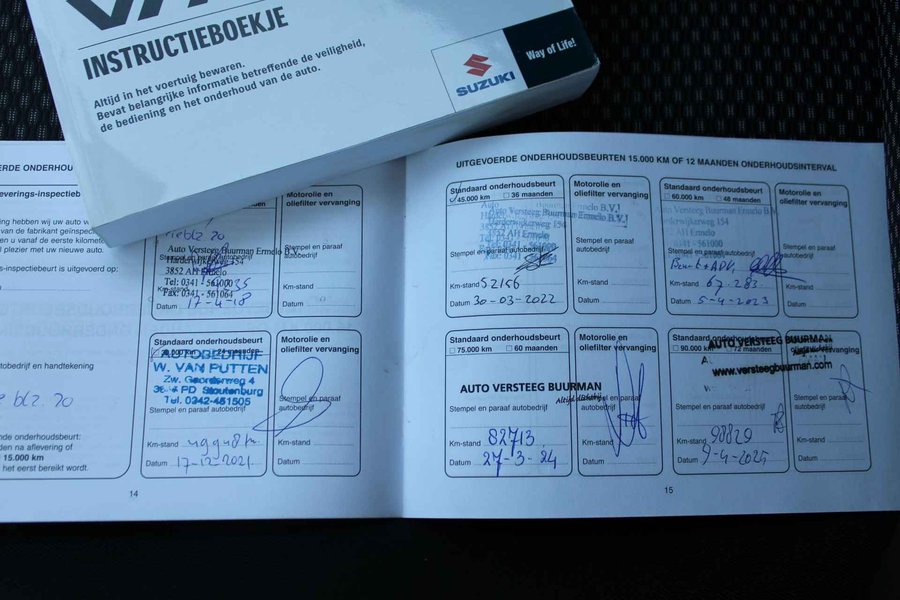 INSTRUCTIEBOEKJE
Altijd in het voertuig bewaren.
Bevat belangrijke informatie betreffende de veiligheid,
de bediening en het onderhoud van de auto.
SUZUKI
Way of Life!
ERDE ONDERHOU
everings-inspectieb
ing hebben wij uw auto
van de fabrikant geïnspec
n u vanaf de eerste kilomet
l plezier met uw nieuwe auto.
s-inspectiebeurt is uitgevoerd op:
todebedrijf en handtekening
blz. 70
nde onderhoudsbeurt:
den na aflevering of
15.000 km
het eerst bereikt wordt.
Motorolie en
oliefilter vervanging
Auto Versteeg Buurman Ermelo
Harderwijkerweg 154
3852 AH Ermelo
Tel: 0341 - 561000
Fax: 0341 - 561064
Datum 17-4-18
Stempel en paraaf
autobedrijf
Km-stand
Datum
Standaard onderhoudsbeurt
AUTOBEDRIJF
W. VAN PUTTEN
Zw. Goorderweg 4
PD Stoutenburg
Tel. 0342-461505
Stempel en paraaf autobedrijf
Km-stand
Datum 17-12-2021
Motorolie en
oliefilter vervanging
Stempel en paraaf
autobedrijf
Km-stand
Datum
14
UITGEVOERDE ONDERHOUDSBEURTEN 15.000 KM OF 12 MAANDEN ONDERHOUDSINTERVAL
Standaard onderhoudsbeurt
45.000 km 36 maanden
Auto Versteeg Buurman Ermelo B.V.
Harderwijkerweg 154
Stempel en paraaf autobedrijf
Km-stand 52156
Datum 30-03-2022
Motorolie en
oliefilter vervanging
Stempel en paraaf
autobedrijf
Km-stand
Datum
Standaard onderhoudsbeurt
60.000 km 48 maanden
Auto Versteeg Buurman Ermelo B.V.
Harderwijkerweg 154
Stempel en paraaf autobedrijf
Km-stand 67.283
Datum 5-4-2023
Motorolie en
oliefilter vervanging
Stempel en paraaf
autobedrijf
Km-stand
Datum
Standaard onderhoudsbeurt
75.000 km 60 maanden
AUTO VERSTEEG BUURMAN
Stempel en paraaf autobedrijf
Km-stand 82713
Datum 27-3-24
Motorolie en
oliefilter vervanging
Stempel en paraaf
autobedrijf
Km-stand
Datum
Standaard onderhoudsbeurt
90.000 km 72 maanden
AUTO VERSTEEG BUURMAN
www.versteegbuurman.com
Stempel en paraaf autobedrijf
Km-stand 98829
Datum 9-4-2025
Motorolie en
oliefilter vervanging
Stempel en paraaf
autobedrijf
Km-stand
Datum
15